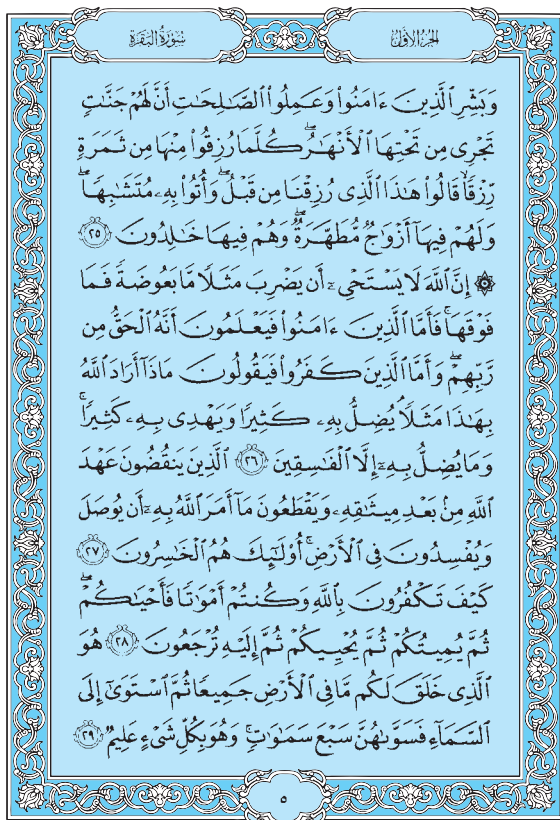 الجزء الأول
سورة البقرة
وَبَشِّرِ ٱلَّذِينَ ءَامَنُوا۟ وَعَمِلُوا۟ ٱلصَّـٰلِحَـٰتِ أَنَّ لَهُمْ جَنَّـٰتٍ
تَجْرِى مِن تَحْتِهَا ٱلْأَنْهَـٰرُ ۖ كُلَّمَا رُزِقُوا۟ مِنْهَا مِن ثَمَرَةٍ
رِّزْقًا ۙ قَالُوا۟ هَـٰذَا ٱلَّذِى رُزِقْنَا مِن قَبْلُ ۖ وَأُتُوا۟ بِهِۦ مُتَشَـٰبِهًا ۖ
وَلَهُمْ فِيهَآ أَزْوَٰجٌ مُّطَهَّرَةٌ ۖ وَهُمْ فِيهَا خَـٰلِدُونَ ٢٥
۞ إِنَّ ٱللَّهَ لَا يَسْتَحْىِۦٓ أَن يَضْرِبَ مَثَلًا مَّا بَعُوضَةً فَمَا
فَوْقَهَا ۚ فَأَمَّا ٱلَّذِينَ ءَامَنُوا۟ فَيَعْلَمُونَ أَنَّهُ ٱلْحَقُّ مِن
رَّبِّهِمْ ۖ وَأَمَّا ٱلَّذِينَ كَفَرُوا۟ فَيَقُولُونَ مَاذَآ أَرَادَ ٱللَّهُ
بِهَـٰذَا مَثَلًا ۘ يُضِلُّ بِهِۦ كَثِيرًا وَيَهْدِى بِهِۦ كَثِيرًا ۚ
وَمَا يُضِلُّ بِهِۦٓ إِلَّا ٱلْفَـٰسِقِينَ ٢٦ ٱلَّذِينَ يَنقُضُونَ عَهْدَ
ٱللَّهِ مِنۢ بَعْدِ مِيثَـٰقِهِۦ وَيَقْطَعُونَ مَآ أَمَرَ ٱللَّهُ بِهِۦٓ أَن يُوصَلَ
وَيُفْسِدُونَ فِى ٱلْأَرْضِ ۚ أُو۟لَـٰٓئِكَ هُمُ ٱلْخَـٰسِرُونَ ٢٧
كَيْفَ تَكْفُرُونَ بِٱللَّهِ وَكُنتُمْ أَمْوَٰتًا فَأَحْيَـٰكُمْ ۖ
ثُمَّ يُمِيتُكُمْ ثُمَّ يُحْيِيكُمْ ثُمَّ إِلَيْهِ تُرْجَعُونَ ٢٨ هُوَ
ٱلَّذِى خَلَقَ لَكُم مَّا فِى ٱلْأَرْضِ جَمِيعًا ثُمَّ ٱسْتَوَىٰٓ إِلَى
ٱلسَّمَآءِ فَسَوَّىٰهُنَّ سَبْعَ سَمَـٰوَٰتٍ ۚ وَهُوَ بِكُلِّ شَىْءٍ عَلِيمٌ ٢٩
٥